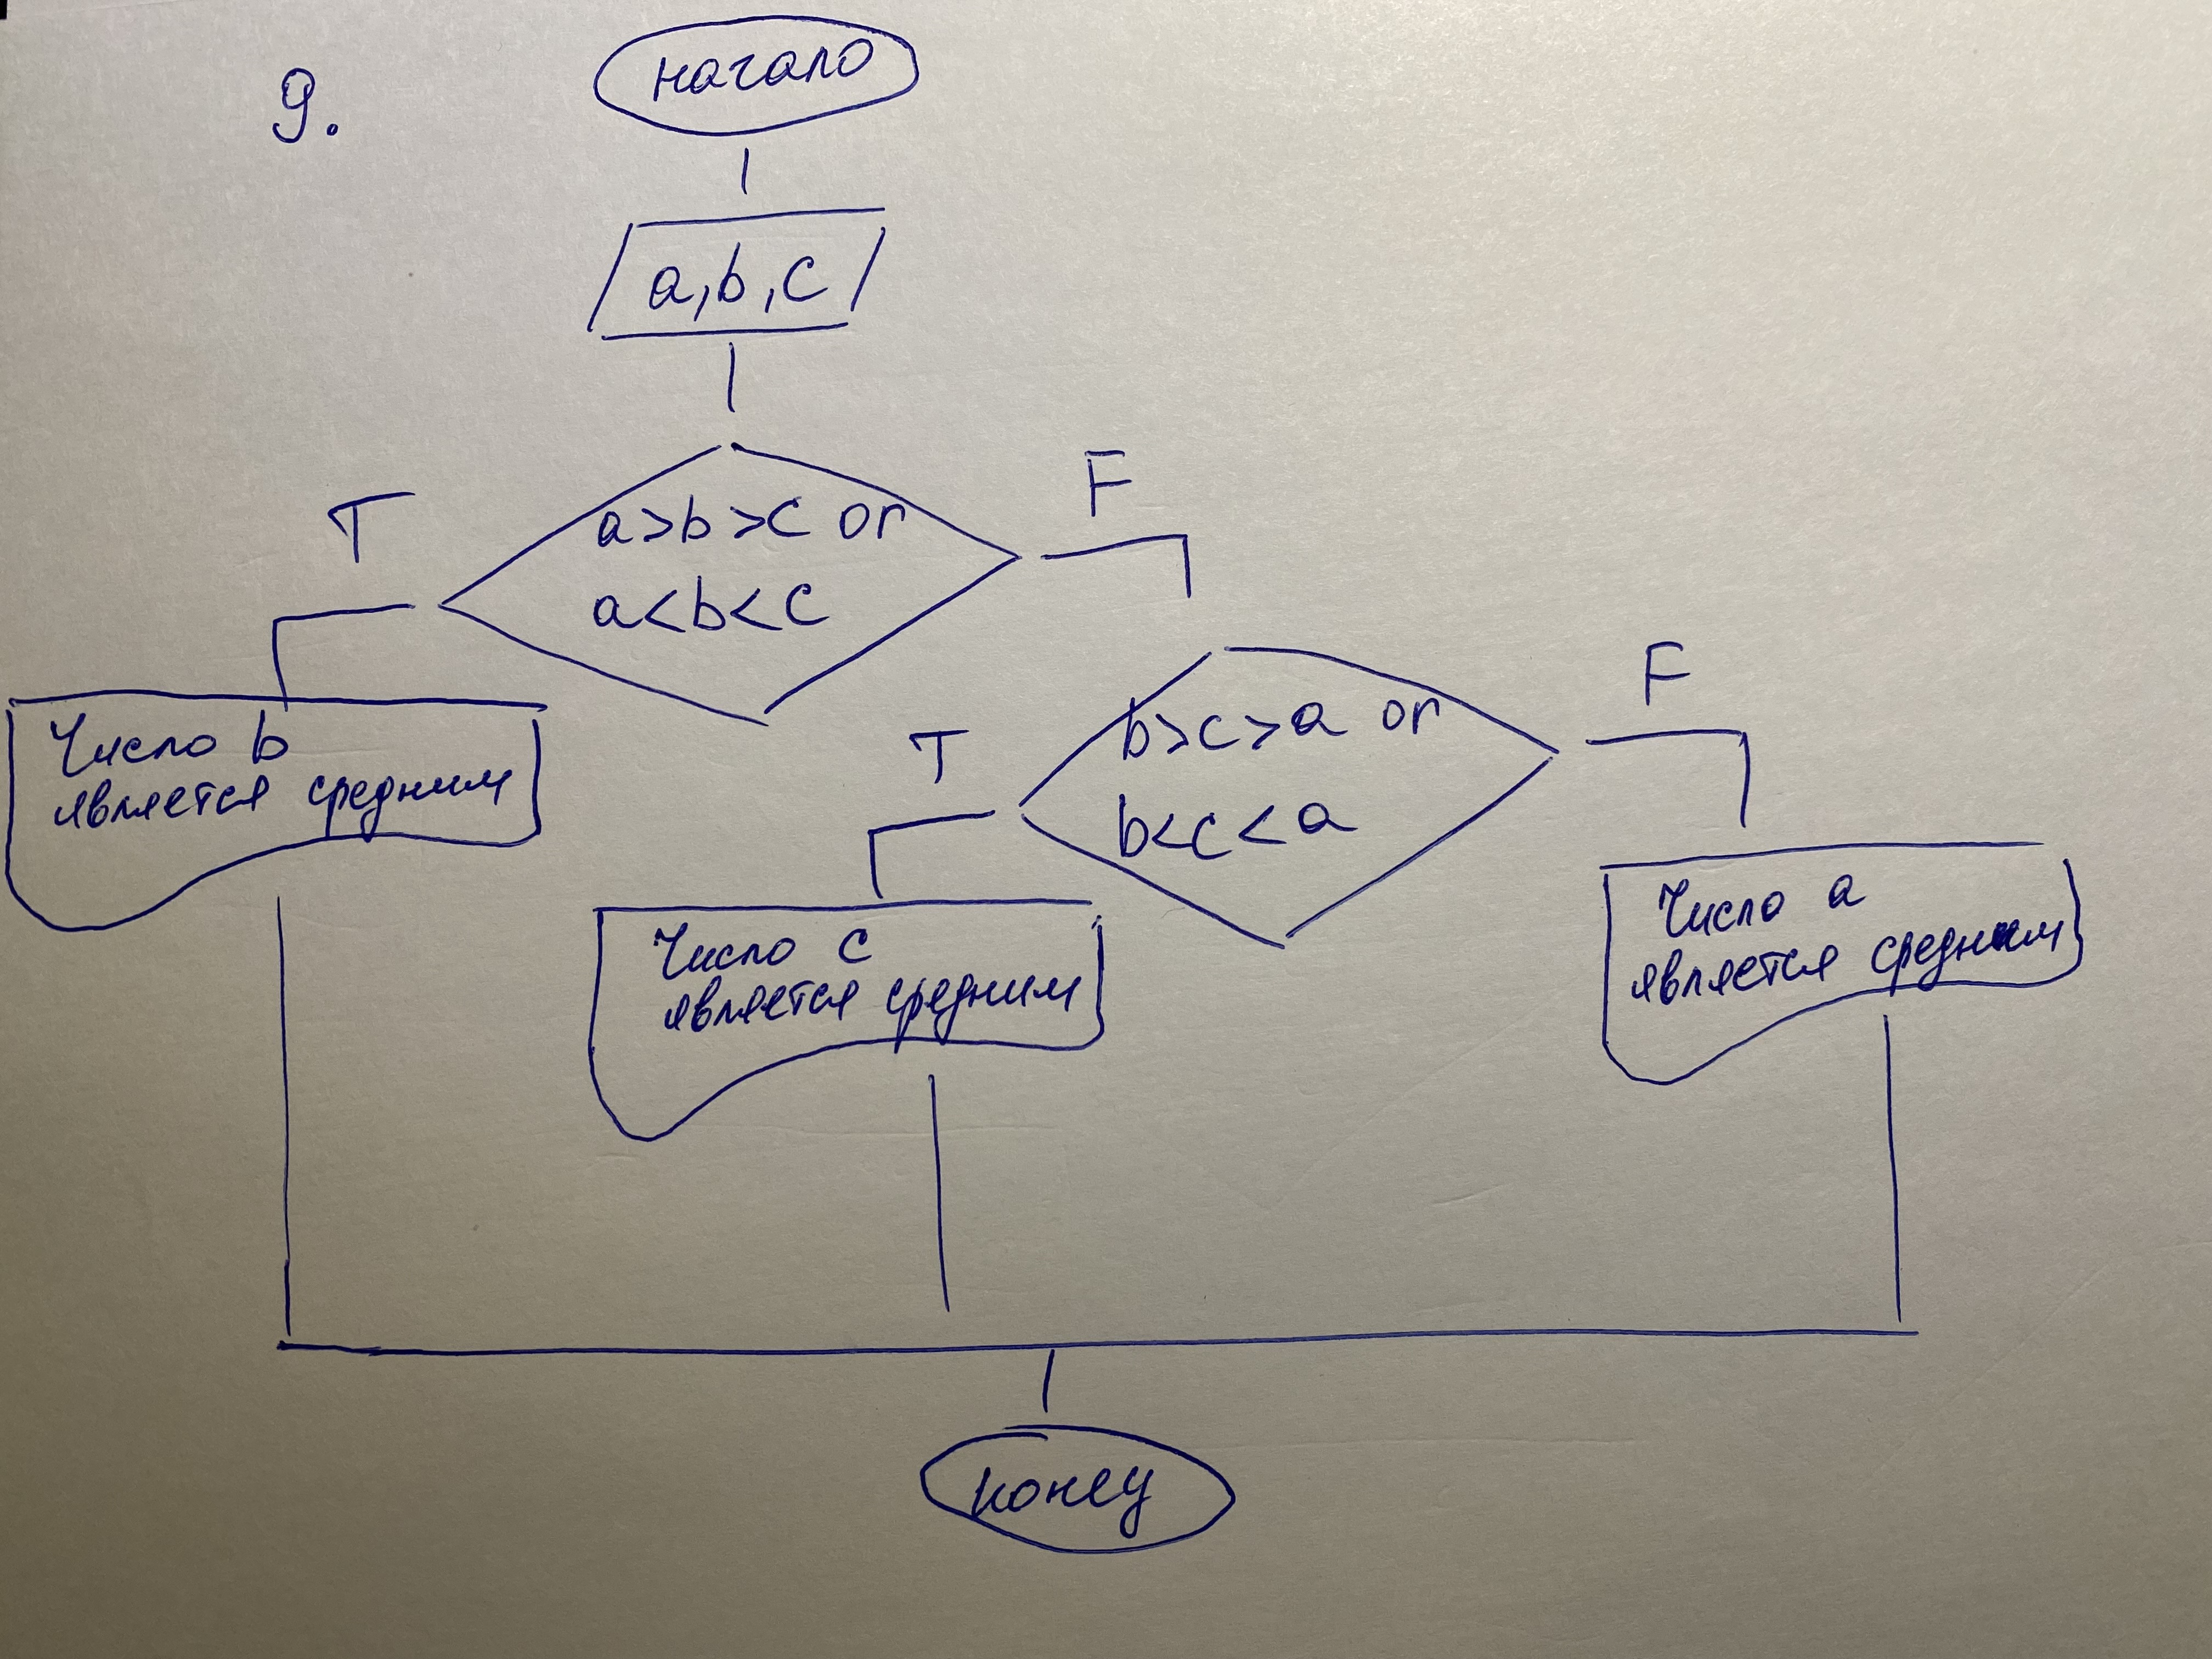 9.
начало
a,b,c
T
a>b>c or
a<b<c
F
Число b
является средним
T
b>c>a or
b<c<a
F
Число c
является средним
Число a
является средним
конец